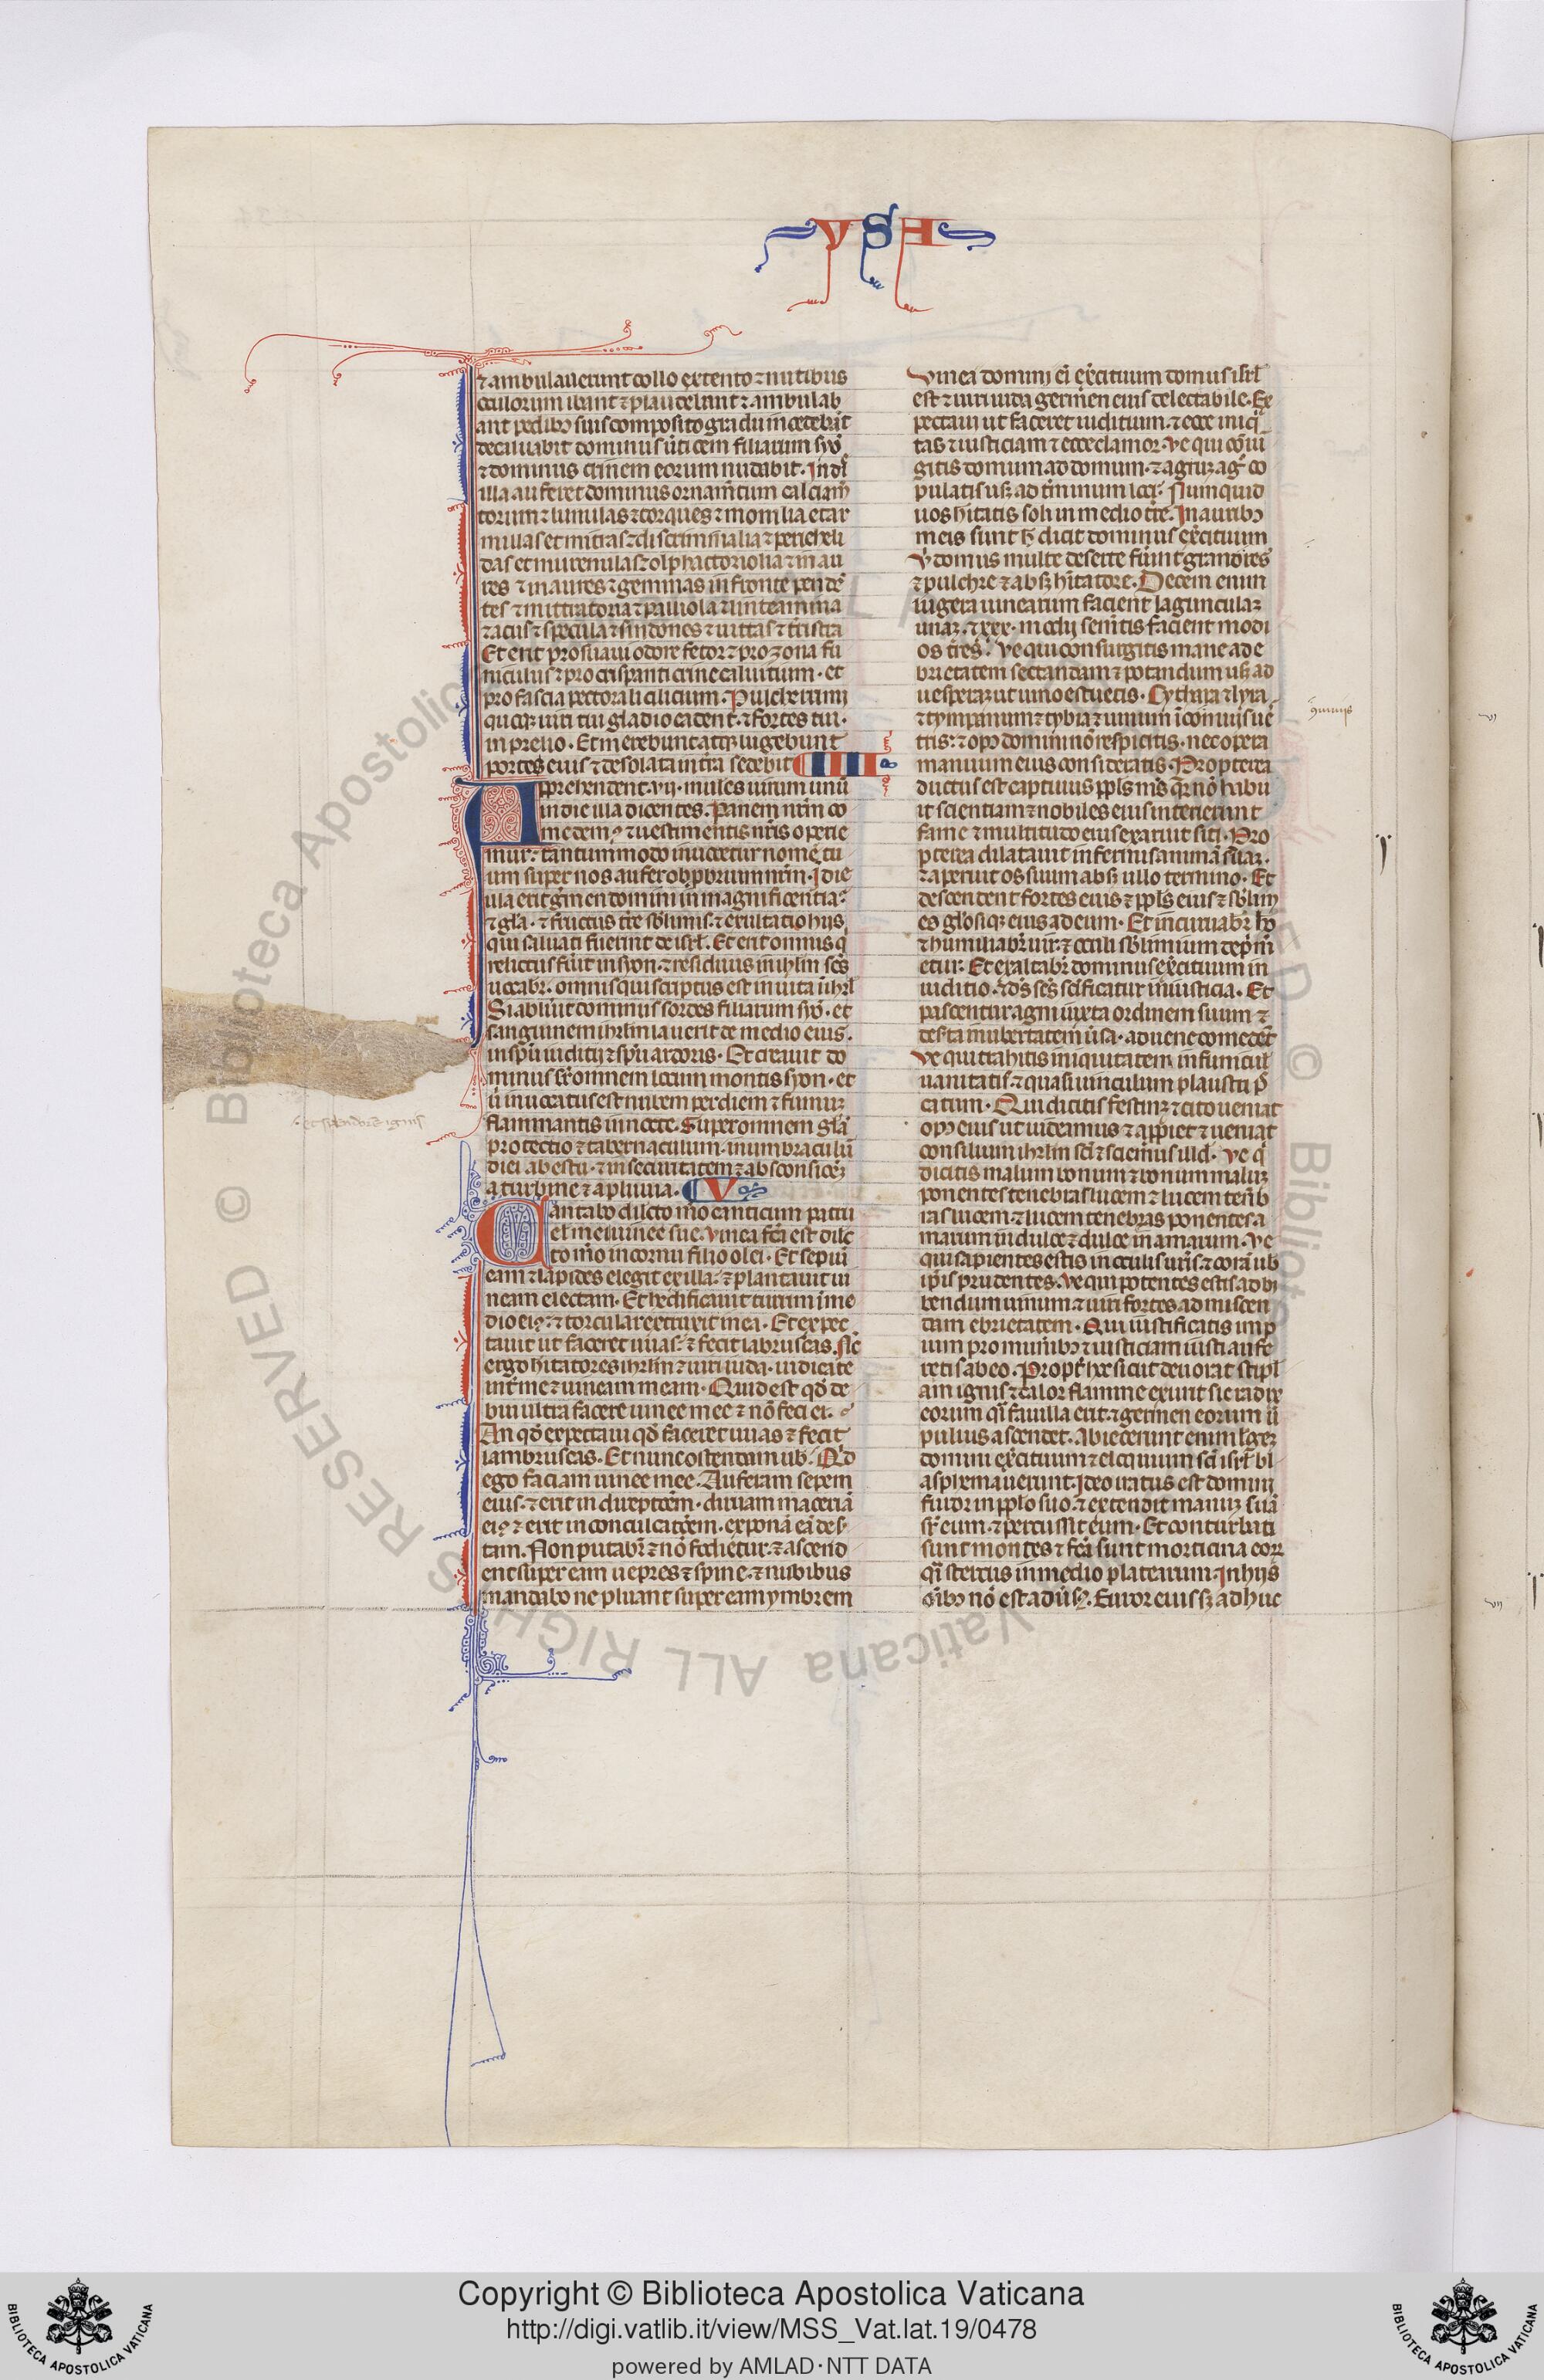 YSA
⁊ ambulauerunt collo extento ⁊ nutibus
oculorum ibant ⁊ plaudebant ⁊ ambulab
ant pedibꝰ suis composito gradu incedebāt
decaluabit dominus ūticem filiarum syō
⁊ dominus crinem eorum nudabit. In
illa auferet dominus ornam̄tum calciam̄
torum ⁊ lunulas ⁊ torques ⁊ monilia et ar
millas et mitras ⁊ discriminalia ⁊ pericheli
das et murenulas ⁊ olphactoriola ⁊ in au
res ⁊ in aures ⁊ gemmas in fronte pendē
tes ⁊ muttatoria ⁊ palliola ⁊ linteamina
⁊ acus ⁊ specula ⁊ sindones ⁊ uittas ⁊ t̄ristra
Et erit pro suaui odore fetor ⁊ pro zona fu
niculus ⁊ pro crispanti crine caluitium. et
pro fascia pectorali cilicium. Pulcherrimi
quoqꝫ uiri tui gladio cadent. ⁊ fortes tui.
in prelio. Et merebunt atqꝫ lugebunt
porte eius ⁊ desolata in t̄ra sedebit IIII
Apprehendent. vij. mulieres uirum unū
in die illa dicentes. Panem nr̄m co
medemꝰ ⁊ uestimentis nr̄is operie
mur. tantummodo inuocetur nomē tu
um super nos aufer obprbrium nr̄m. I die
illa erit gm̄en domini in magnificentia
⁊ gl̄a. ⁊ fructus t̄re sb̄limis. ⁊ exultatio hijs
qui saluati fuerint de isrl̄. Et erit omnis q
relictus fūit in syon. ⁊ residuus in ihrlm sc̄s
uocabr̄. omnis qui scriptus est in uita ī ihrl̄
Si abluūt dominus sordes filiarum syō. et
sanguinem ihrlm lauerit de medio eius.
in sp̄u iudicij ⁊ sp̄u ardoris. Et creauit do
minus sr̄ omnem locum montis syon. et
ū inuocatus est nubem per diem ⁊ fumuꝫ
flammantis in nocte. Super omnem gl̄ā
protectio ⁊ tabernaculum. in umbraculū
diei ab estu. ⁊ in securitatem ⁊ absconsioꝫ
a turbine ⁊ a pluuia. V
Cantabo dilc̄to m̄o canticum patru
elis mei uinee sue. uinea fc̄a est dilc̄
to m̄o in cornu filio olei. Et sepiuī
eam ⁊ lapides elegit ex illa. ⁊ plantauit ui
neam electam. Et hedificauit turrim ī me
dio eiꝰ. ⁊ torcular extruxit in ea. Et expec
tauit ut faceret uuas. ⁊ fecit labruscas. Nc̄
ergo hītatores ihrlm ⁊ uiri iuda. iudicate
int̄ me ⁊ uineam meam. Quid est qd̄ de
bui ultra facere uinee mee ⁊ nō feci ei.
An qd̄ expectaui qd̄ faceret uuas ⁊ fecit
lambruscas. Et nunc ostendam ub̄. Qd̄
ego faciam uinee mee. Auferam sepem
eius. ⁊ erit in direptōem. diruam maceriā
eiꝰ ⁊ erit in conculcatōem. exponā eā des
tam. Non putabr̄ ⁊ nō fodietur. ⁊ ascend
ent super eam uepres ⁊ spine. ⁊ nubibus
mandabo ne pluant super eam ymbrem
Uinea domini exc̄ituum domus isrl̄
est ⁊ uiri iuda germen eius delectabile. Ex
pectaui ut faceret iuditium. ⁊ ecce iniq
tas ⁊ iusticiam ⁊ ecce clamor. Ve qui cōiū
gitis domum ad domum. ⁊ agruꝫ agꝰ co
pulatis usqꝫ ad t̄minum loci. Numquid
uos hītatis soli in medio t̄re. In auribꝰ
meis sunt h̄ dicit dominus exc̄ituum
domus multe deserte fūint grandiores
⁊ pulchre ⁊ absqꝫ hītatore. Decem enim
iugera uinearum facient lagunculaꝫ
unaꝫ. ⁊ xxx. modij sentis facient modi
os tres. Ve qui consurgitis mane ad e
brietatem sectandam ⁊ potandum usqꝫ ad
uesperaꝫ ut uino estuetis. Cythara ⁊ lyra
⁊ tympanum ⁊ tybia ⁊ uinum ī conuiuijs ue
tris. ⁊ opꝰ domini nō respicitis. nec opera
manuum eius consideratis. Propterea
ductus est captiuus ppl̄s m̄s qr̄ nō habu
it scientiam ⁊ nobiles eius interierunt
fame ⁊ multitudo eius exaruit siti. Pro
pterea dilatauit infernus animā suaꝫ.
⁊ aperuit os suum absqꝫ ullo termino. Et
descendent fortes eius ⁊ ppl̄s eius ⁊ sb̄lim
es gl̄osiqꝫ eius ad eum. Et incuruabr̄ hō
⁊ humiliabr̄ uir. ⁊ oculi sb̄limium dep̄m̄
etur. Et exaltabr̄ dominus exc̄ituum in
iuditio. ⁊ ds̄ sc̄s sc̄ificatur in iusticia. Et
pascentur agni iuxta ordinem suum ⁊
deserta in ubertatem ūsa. aduene comedēt
Ve qui trahitis iniquitatem in funicul̄
uanitatis ⁊ quasi uinculum plaustri p̄
catum. Qui dicitis festinꝫ ⁊ cito ueniat
opꝰ eius ut uideamus ⁊ app̄iet ⁊ ueniat
consilium ihrlm sc̄i ⁊ sciemus illd̄. Ve q
dicitis malum bonum ⁊ bonum maluꝫ
ponentes tenebras lucem ⁊ lucem ten̄b
ras lucem. ⁊ lucem tenebras ponentes a
marum in dulce ⁊ dulce in amarum. Ve
qui sapientes estis in oculis ur̄is. ⁊ corā ub
ip̄is prudentes. Ve qui potentes estis ad bi
bendum uinum ⁊ uiri fortes ad miscen
dam ebrietatem. Qui iustificatis imp
ium pro munībꝰ ⁊ iusticiam iusti aufe
retis ab eo. Propt̄ hoc sicut deuorat stipl
am ignis ⁊ calor flamme exurit sic radix
eorum qi fauilla erit. ⁊ germen eorum ū
puluis ascendet. Abiecerunt enim legeꝫ
domini exc̄ituum ⁊ eloquium sc̄i isrl̄ bl
asphemauerunt. Ideo iratus est domini
furor in pplo suo. ⁊ extendit manuꝫ suā
sr̄ eum. ⁊ percussit eum. Et conturbati
sunt montes ⁊ fc̄a sunt morticina eorꝝ
qi stercus in medio platearum. In hijs
oībꝰ nō est aduersꝰ. Furor eius sꝫ adhuc
et splendorē ignis
Copyright © Biblioteca Apostolica Vaticana
http://digi.vatlib.it/view/MSS_Vat.lat.19/0478
powered by AMLAD·NTT DATA
BIBLIOTECA APOSTOLICA VATICANA
BIBLIOTECA APOSTOLICA VATICANA
© Biblioteca Apostolica Vaticana ALL RIGHTS RESERVED